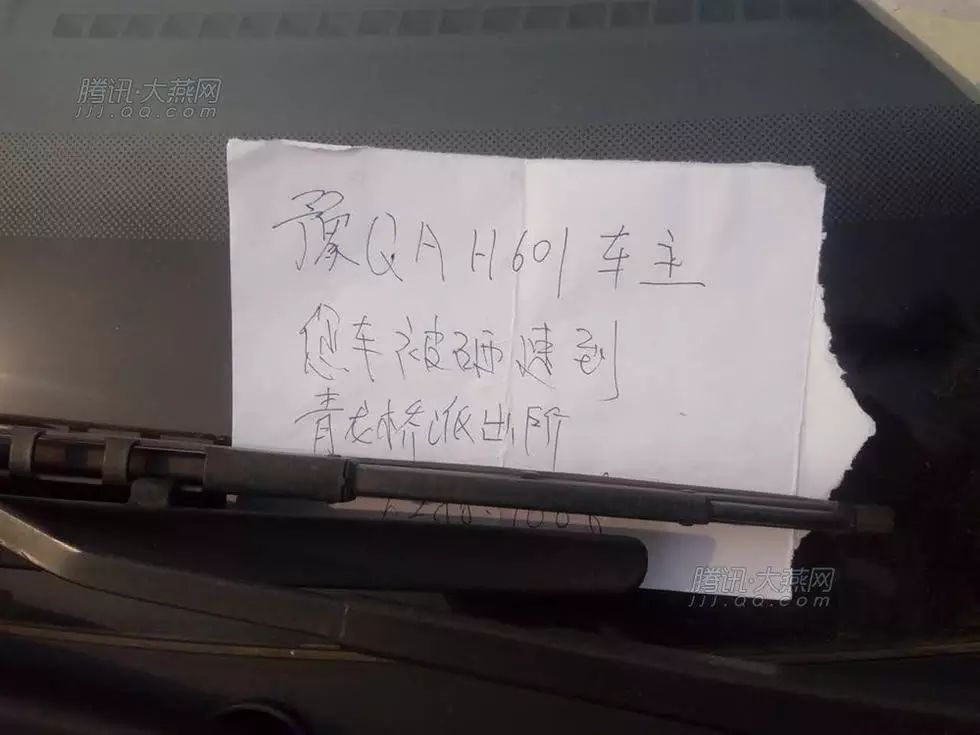 腾讯·大燕网
jjj.qq.com
豫QAH601车主
您车被砸速到
青龙桥派出所
腾讯·大燕网
jjj.qq.com